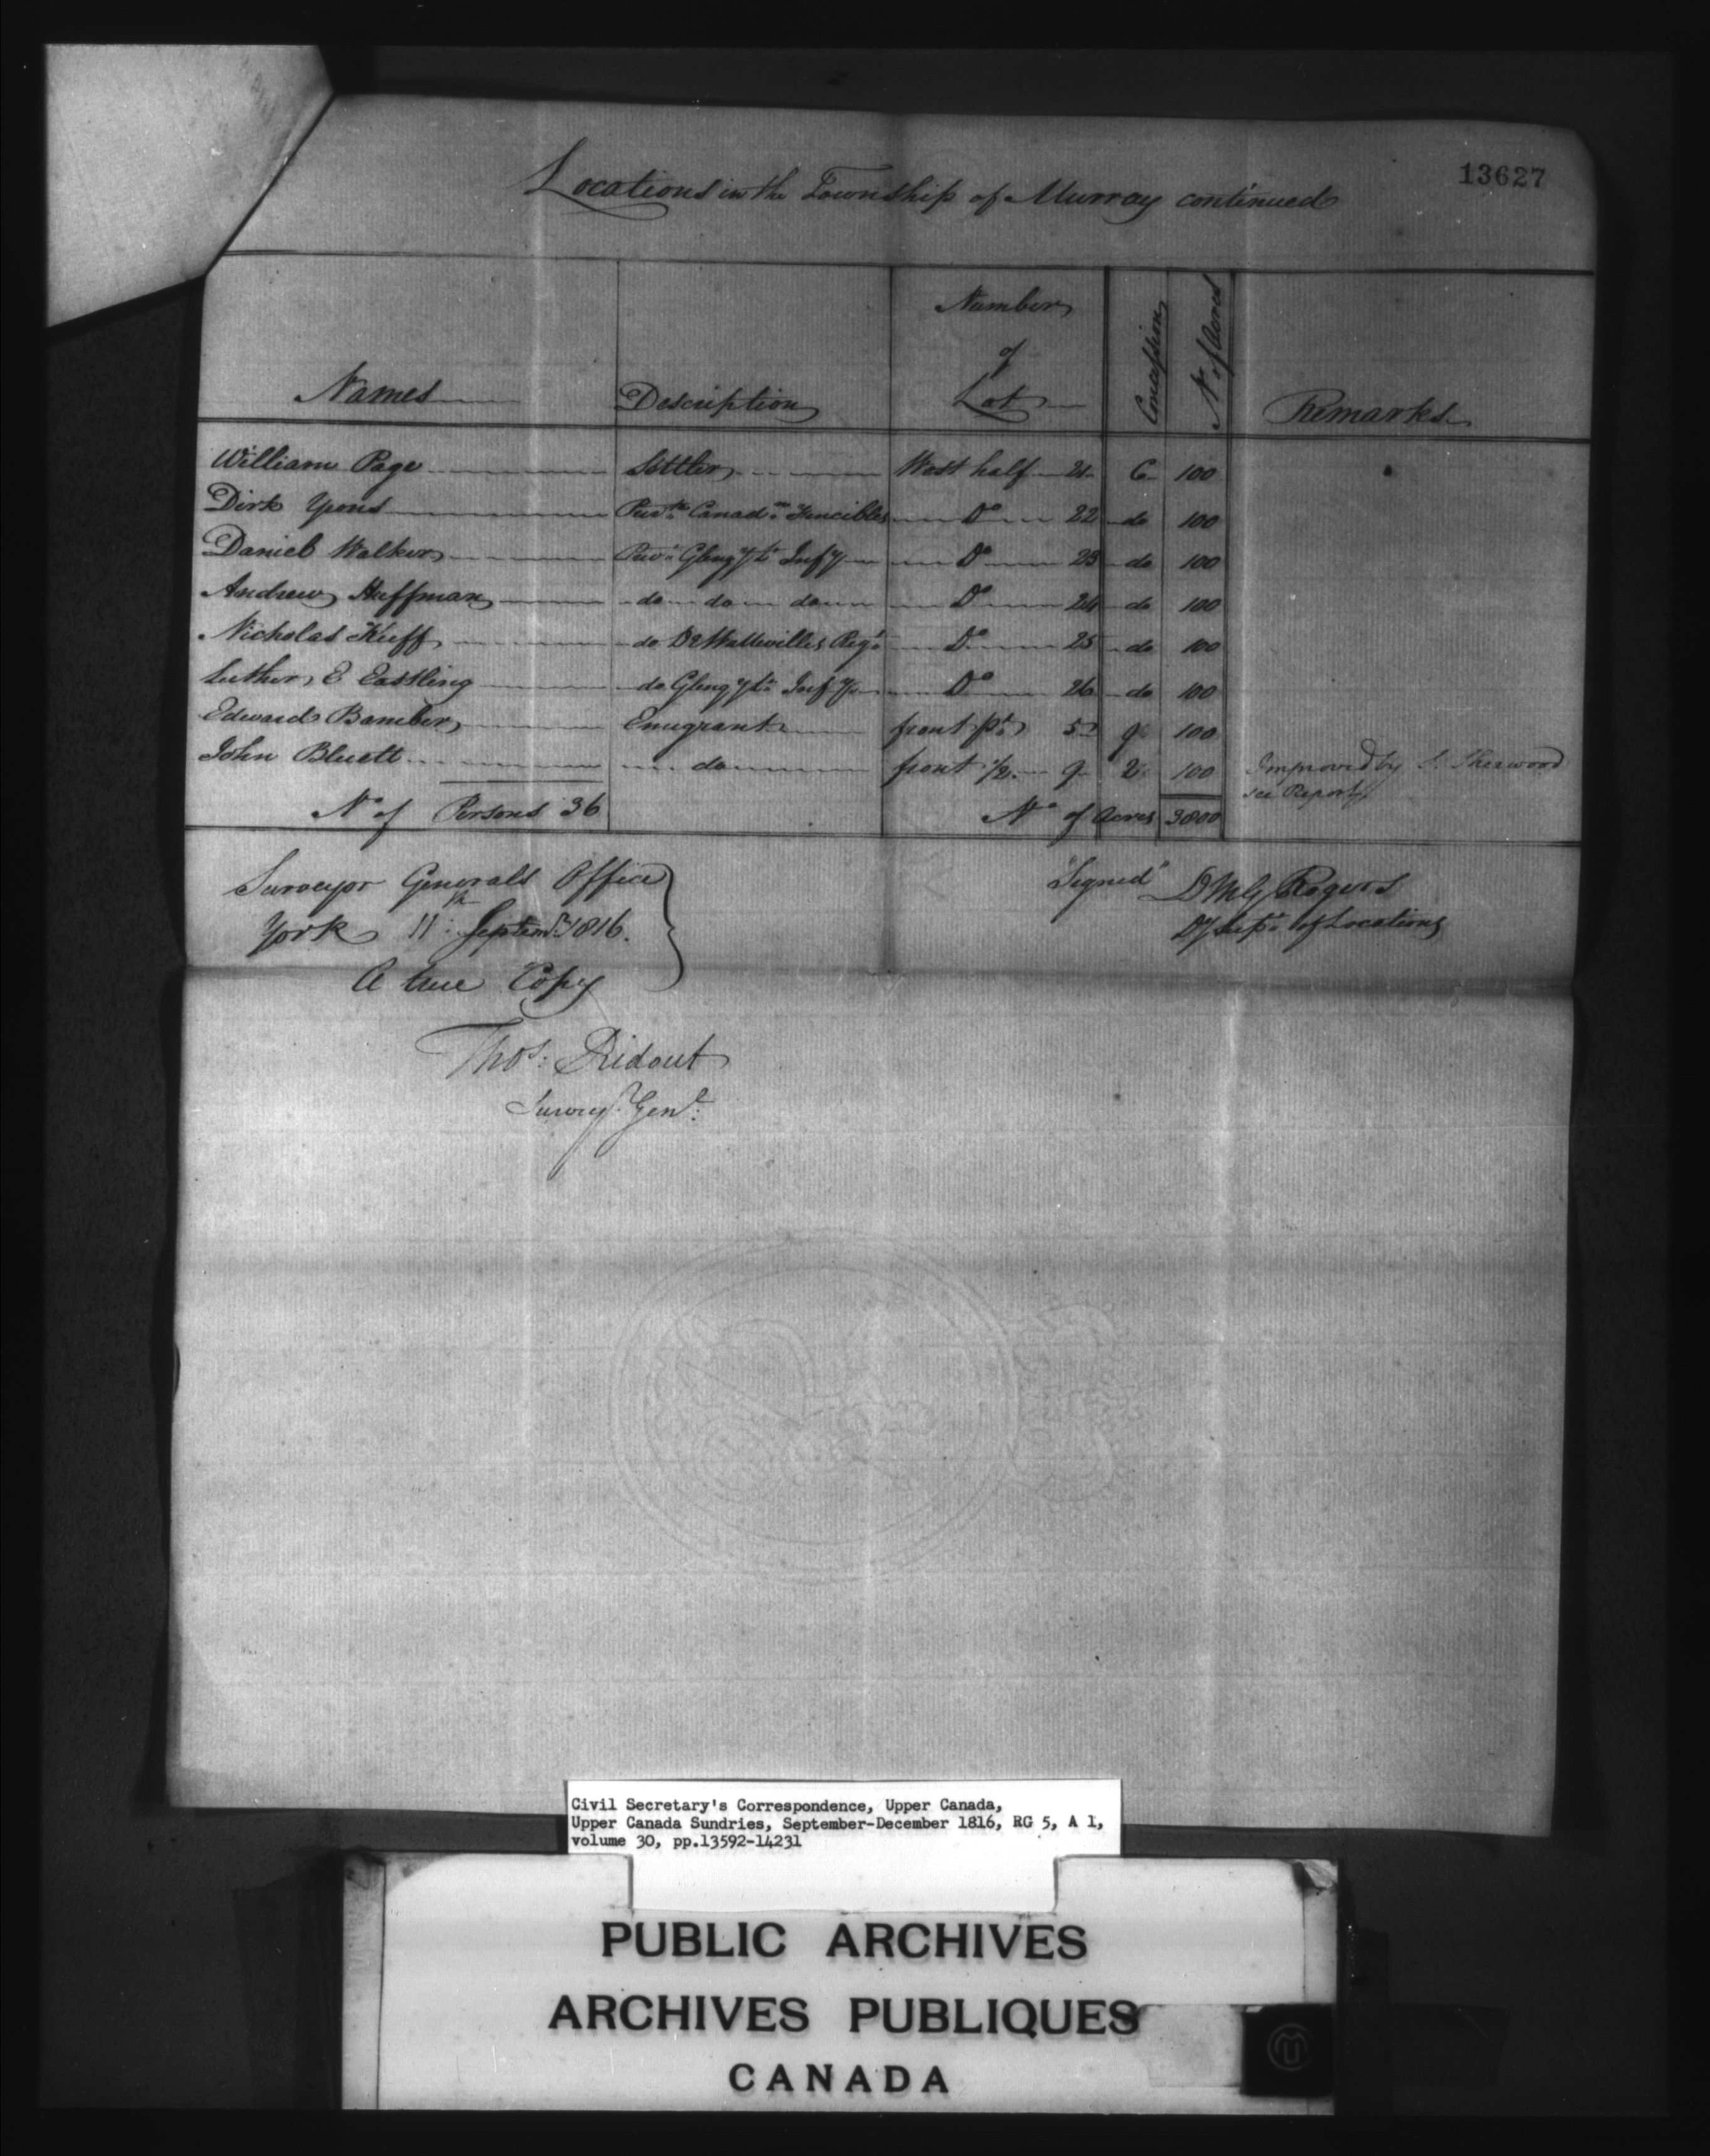 13627
Locations in the Township of Murray continued
Names Description Number of Lot Concession No of Acres Remarks
William Page Settler West half 21 6 100
Dirk Yons Priv.te Canad.n Fencibles Do 22 do 100
Daniel Walker Priv.e Glengy Lt Infy Do 23 do 100
Andrew Huffman do do do Do 24 do 100
Nicholas Kieff do De Wattevilles Regt Do 25 do 100
Luther E Eastling do Glengy Lt Infy Do 26 do 100
Edward Bamber Emigrant front pt 5 9 100
John Bluett do front 1/2 9 2 100 Improved by S. Sherwood
see Report
No of Persons 36 No of Acres 3800
Surveyor Generals Office
York 11th Septemr 1816.
A true Copy
"Signed" D McG Rogers
Dy Supt of Locations
Thos: Ridout
Survey.r Genl:
Civil Secretary's Correspondence, Upper Canada,
Upper Canada Sundries, September-December 1816, RG 5, A 1,
volume 30, pp.13592-14231
PUBLIC ARCHIVES
ARCHIVES PUBLIQUES
CANADA